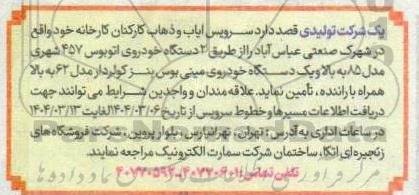 یک شرکت تولیدی قصد دارد سرویس ایاب و ذهاب کارکنان کارخانه خود واقع
در شهرک صنعتی عباس آباد را از طریق ۲ دستگاه خودروی اتوبوس ۴۵۷ شهری
مدل ۸۵ به بالا و یک دستگاه خودروی مینی بوس بنز کولردار مدل ۶۲ به بالا
همراه با راننده، تأمین نماید. علاقه مندان و واجدین شرایط می توانند جهت
دریافت اطلاعات مسیرها و خطوط سرویس از تاریخ ۱۴۰۴/۰۳/۰۶ لغایت ۱۴۰۴/۰۳/۱۳
در ساعات اداری به آدرس: تهران، تهرانپارس، بلوار پروین، شرکت فروشگاه های
زنجیره ای اتکا، ساختمان شرکت سمارت الکترونیک مراجعه نمایند.
تلفن تماس: ۴۰۷۷۰۶۰۱-۴۰۷۷۰۵۹۴